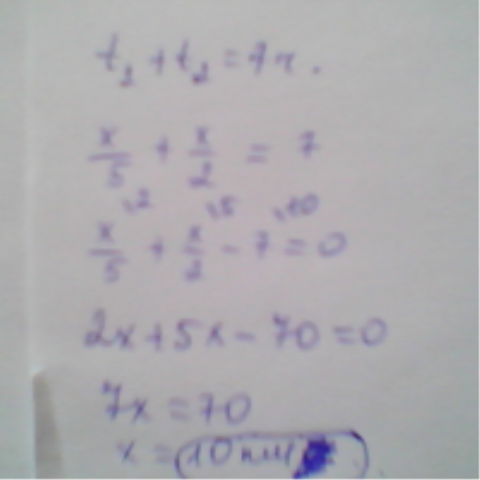 t₁ + t₂ = 7ч.
x/5 + x/2 = 7
\2 \5 \10
x/5 + x/2 - 7 = 0
2x + 5x - 70 = 0
7x = 70
x = 10км